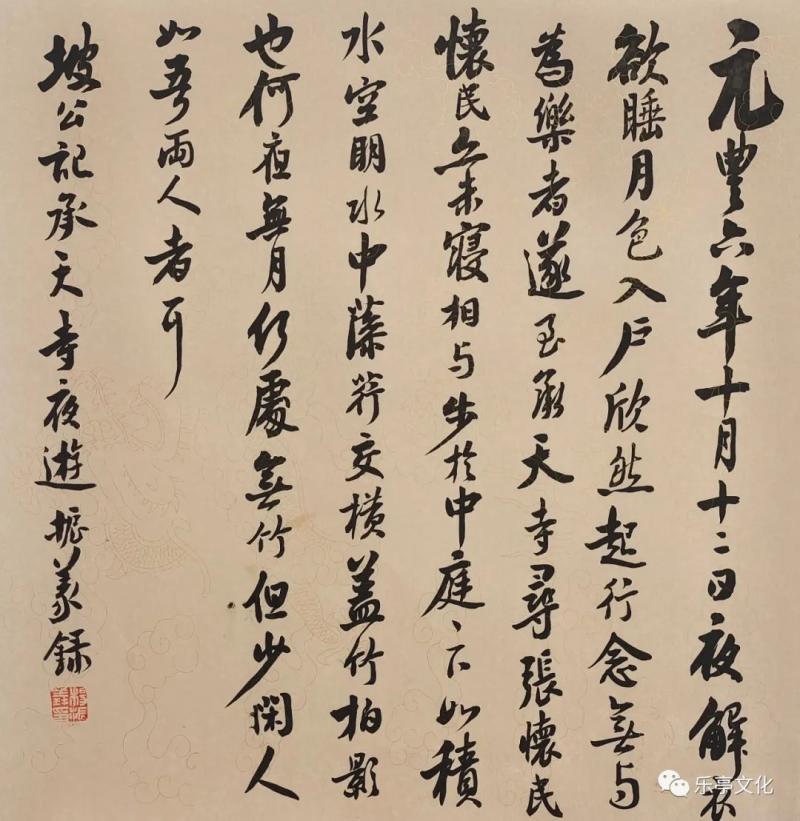 元豐六年十月十二日夜解衣
欲睡月色入户欣然起行念無与
為樂者遂至承天寺尋張懷民
懷民亦未寢相与步於中庭〻下如積
水空明水中藻荇交橫蓋竹柏影
也何夜無月何處無竹但少閑人
如吾兩人者耳
坡公記承天寺夜遊 振義録
乐亭文化